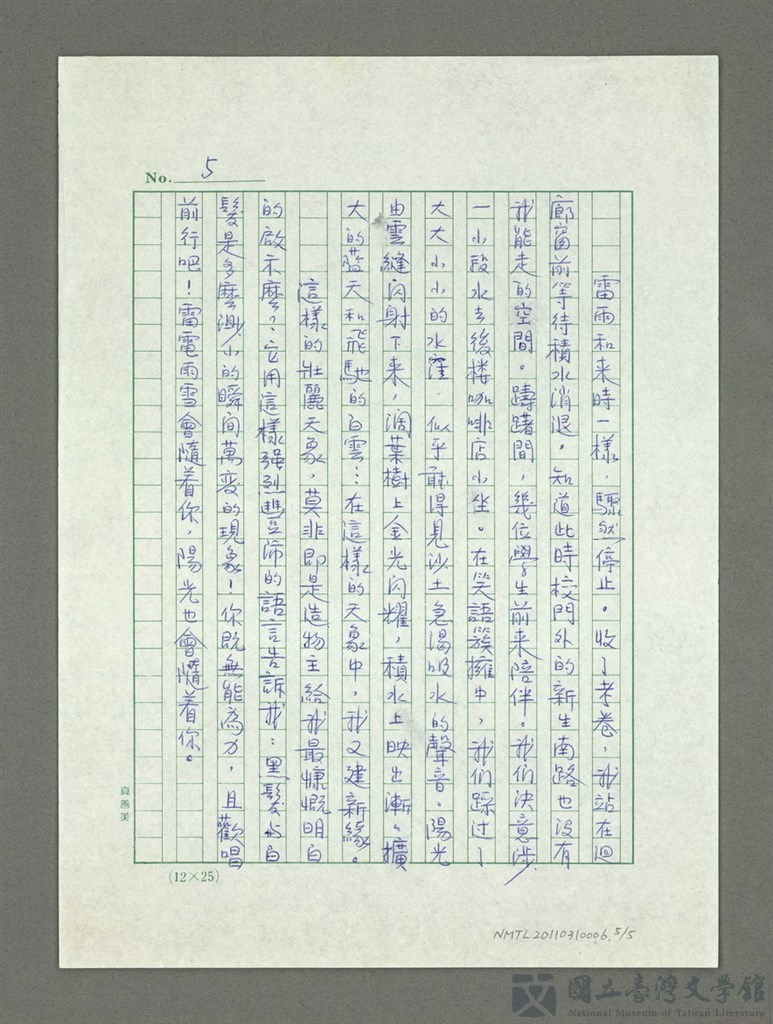 No. 5
雷雨和来時一樣，驟然停止。收了考卷，我站在迴
廊窗前等待積水消退，知道此時校門外的新生南路也没有
我能走的空間。躊躇間，幾位學生前来陪伴。我们決意涉
一小段水去後楼咖啡店小坐。在笑語簇擁中，我们踩过了
大大小小的水窪，似乎聽得見沙土急渴吸水的聲音。陽光
由雲縫闪射下来，濶葉樹上金光闪耀，積水上映出漸漸擴
大的藍天和飛馳的白雲…在這樣的天象中，我又建新緣。
這樣的壯麗天象，莫非即是造物主给我最慷慨明白
的啟示麼？它用這樣强烈豐沛的語言告訴我：黑髮与白
髮是多麼渺小的瞬间萬变的現象！你既無能為力，且歡唱
前行吧！雷電雨雪會隨着你，陽光也會隨着你。
真善美
(12×25)
NMTL20110310006, 5/5
國立臺灣文學館
National Museum of Taiwan Literature